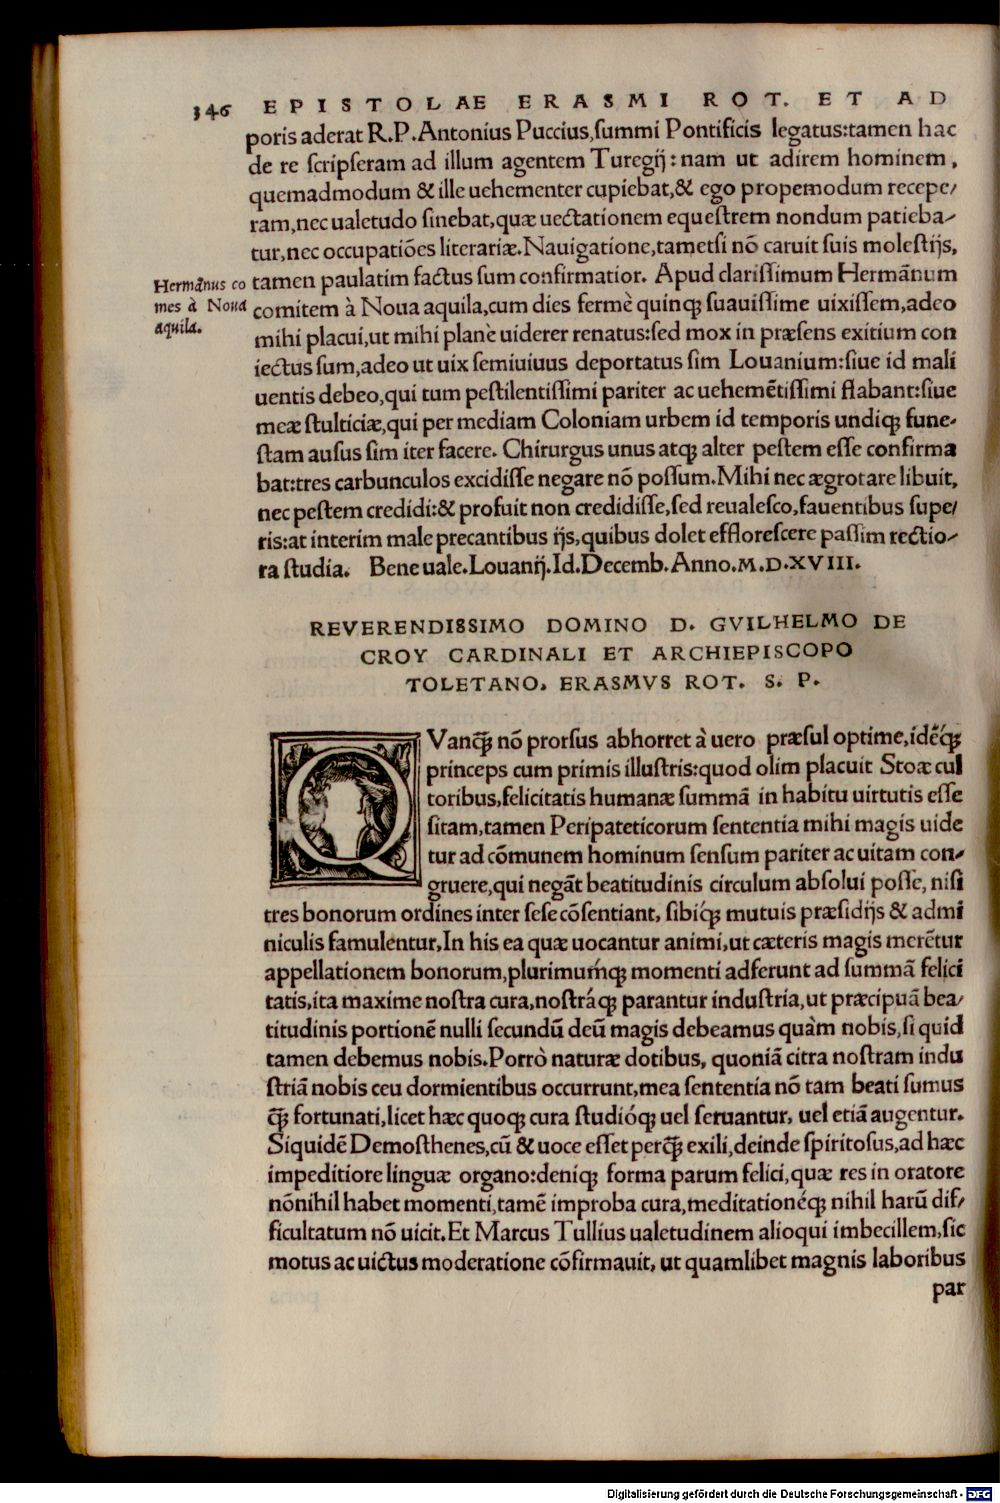 346 EPISTOLAE ERASMI ROT. ET AD
poris aderat R.P. Antonius Puccius, summi Pontificis legatus: tamen hac
de re scripseram ad illum agentem Turegij: nam ut adirem hominem,
quemadmodum & ille uehementer cupiebat, & ego propemodum recepe/
ram, nec ualetudo sinebat, quæ uectationem equestrem nondum patieba/
tur, nec occupatiões literariæ. Nauigatione, tametsi nõ caruit suis molestijs,
tamen paulatim factus sum confirmatior. Apud clarissimum Hermãnum
Hermãnus co
mes à Noua
aquila.
comitem à Noua aquila, cum dies fermè quinqꝫ suauissime uixissem, adeo
mihi placui, ut mihi planè uiderer renatus: sed mox in præsens exitium con
iectus sum, adeo ut uix semiuiuus deportatus sim Louanium: siue id mali
uentis debeo, qui tum pestilentissimi pariter ac uehemẽtissimi flabant: siue
meæ stulticiæ, qui per mediam Coloniam urbem id temporis undiqꝫ fune/
stam ausus sim iter facere. Chirurgus unus atqꝫ alter pestem esse confirma
bat: tres carbunculos excidisse negare nõ possum. Mihi nec ægrotare libuit,
nec pestem credidi: & profuit non credidisse, sed reualesco, fauentibus supe/
ris: at interim male precantibus ijs, quibus dolet efflorescere passim rectio/
ra studia. Bene uale. Louanij. Id. Decemb. Anno. M.D.XVIII.
REVERENDISSIMO DOMINO D. GVILHELMO DE
CROY CARDINALI ET ARCHIEPISCOPO
TOLETANO, ERASMVS ROT. S. P.
QVanqꝫ̃ nõ prorsus abhorret à uero præsul optime, idẽqꝫ́
princeps cum primis illustris: quod olim placuit Stoæ cul
toribus, felicitatis humanæ summã in habitu uirtutis esse
sitam, tamen Peripateticorum sententia mihi magis uide
tur ad cõmunem hominum sensum pariter ac uitam con/
gruere, qui negãt beatitudinis circulum absolui posse, nisi
tres bonorum ordines inter sese cõsentiant, sibiqꝫ́ mutuis præsidijs & admi
niculis famulentur, In his ea quæ uocantur animi, ut cæteris magis merẽtur
appellationem bonorum, plurimumqꝫ́ momenti adferunt ad summã felici
tatis, ita maxime nostra cura, nostráqꝫ parantur industria, ut præcipuã bea/
titudinis portionẽ nulli secundũ deũ magis debeamus quàm nobis, si quid
tamen debemus nobis. Porrò naturæ dotibus, quoniã citra nostram indu
striã nobis ceu dormientibus occurrunt, mea sententia nõ tam beati sumus
qꝫ̃ fortunati, licet hæc quoqꝫ cura studióqꝫ uel seruantur, uel etiã augentur.
Siquidẽ Demosthenes, cũ & uoce esset perqꝫ̃ exili, deinde spiritosus, ad hæc
impeditiore linguæ organo: deniqꝫ forma parum felici, quæ res in oratore
nõnihil habet momenti, tamẽ improba cura, meditationéqꝫ nihil harũ dif/
ficultatum nõ uicit. Et Marcus Tullius ualetudinem alioqui imbecillem, sic
motus ac uictus moderatione cõfirmauit, ut quamlibet magnis laboribus
par
Digitalisierung gefördert durch die Deutsche Forschungsgemeinschaft - DFG